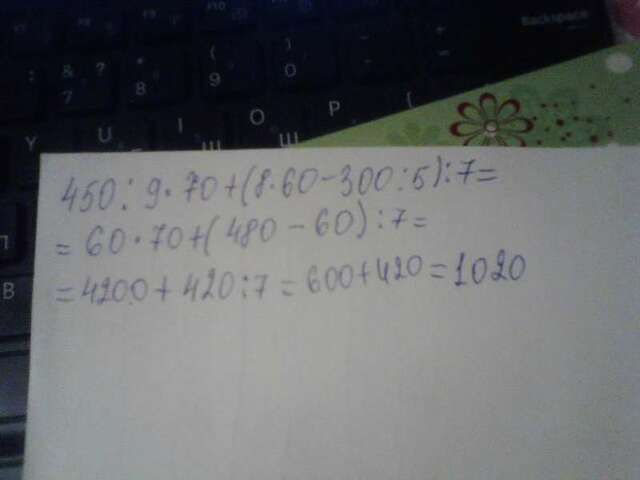 Backspace
& ?
7
*
8
(
9
)
0
Y
U
I
O
P
450:9·70+(8·60-300:5):7=
=60·70+(480-60):7=
=4200+420:7=600+420=1020
П
В